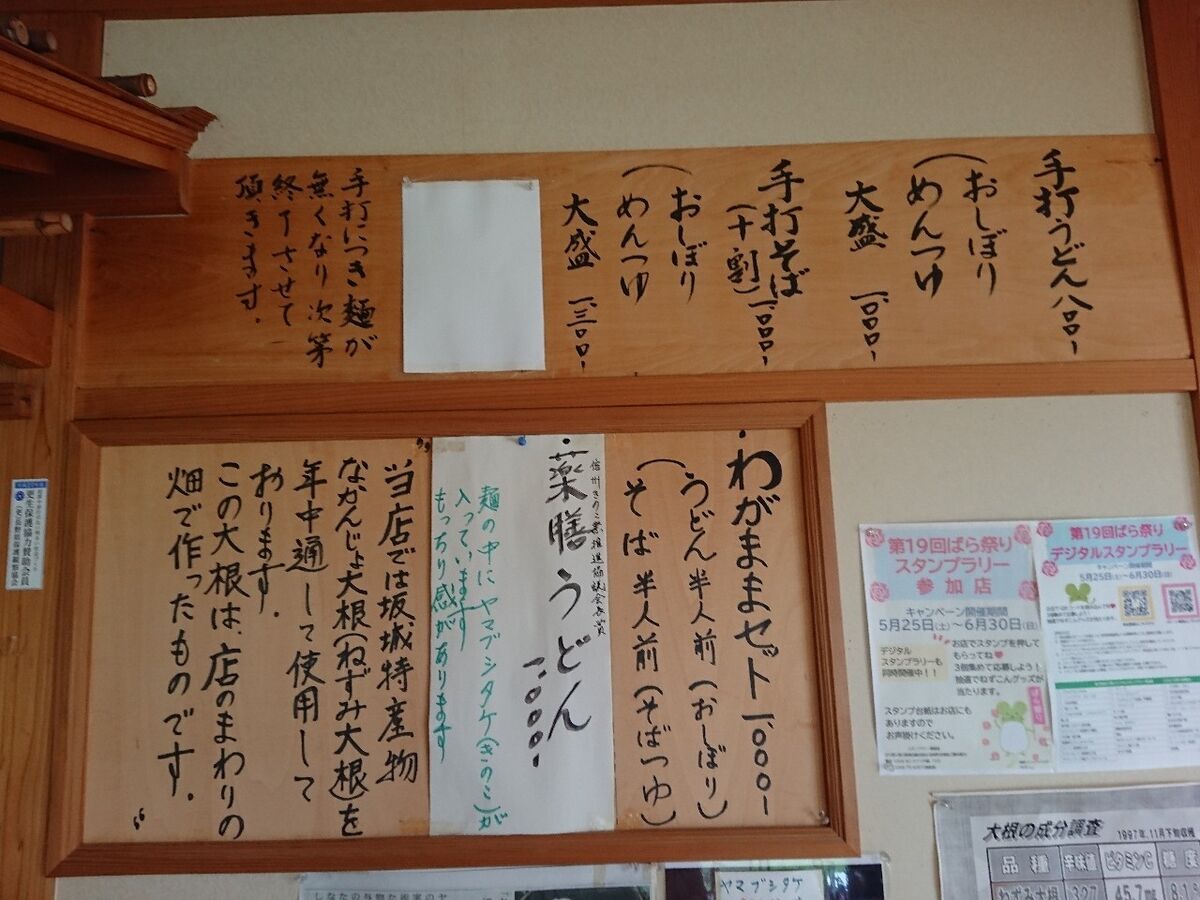 手打うどん 八〇〇-
(おしぼり
めんつゆ
大盛 一、〇〇〇-
手打そば
(十割) 一、〇〇〇-
(おしぼり
めんつゆ
大盛 一、三〇〇-
手打につき麺が
無くなり次第
終了させて
頂きます。
わがままセット 一、〇〇〇-
(うどん半人前(おしぼり)
そば半人前(そばつゆ)
信州きのこ業推進協議会長賞
・薬膳うどん
一、〇〇〇-
麺の中にヤマブシタケ(きのこ)が
入っています
もっちり感があります
当店では坂城特産物
なかんじょ大根(ねずみ大根)を
年中通して使用して
おります。
この大根は、店のまわりの
畑で作ったものです。
更生保護協力賛助会員
第19回ばら祭り
スタンプラリー
参加店
キャンペーン開催期間
5月25日(土)~6月30日(日)
デジタル
スタンプラリーも
同時開催中!!
お店でスタンプを押して
もらってね
3個集めて応募しよう!
抽選でねずこんグッズが
当たります。
スタンプ台紙はお店にも
ありますので
お声掛けください。
第19回ばら祭り
デジタルスタンプラリー
キャンペーン開催期間
5月25日(土)~6月30日(日)
大根の成分調査 1997.11月下旬収穫
品種 辛味値 ビタミンC 糖度
ねずみ大根 327 45.7mg 8.1
ヤマブシタケ